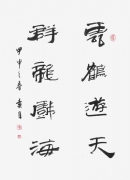 雲鶴遊天
群龍戲海
甲申之春